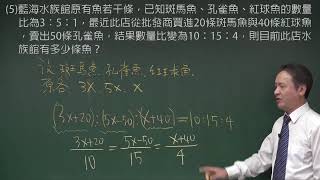 (5)藍海水族館原有魚若干條，已知斑馬魚、孔雀魚、紅球魚的數量
比為3：5：1，最近此店從批發商買進20條斑馬魚與40條紅球魚
，賣出50條孔雀魚，結果數量比變為10：15：4，則目前此店水
族館有多少條魚？
設 斑馬魚、孔雀魚、紅球魚
原各 3x, 5x, x
(3x+20):(5x-50):(x+40)=10:15:4
3x+20 / 10 = 5x-50 / 15 = x+40 / 4